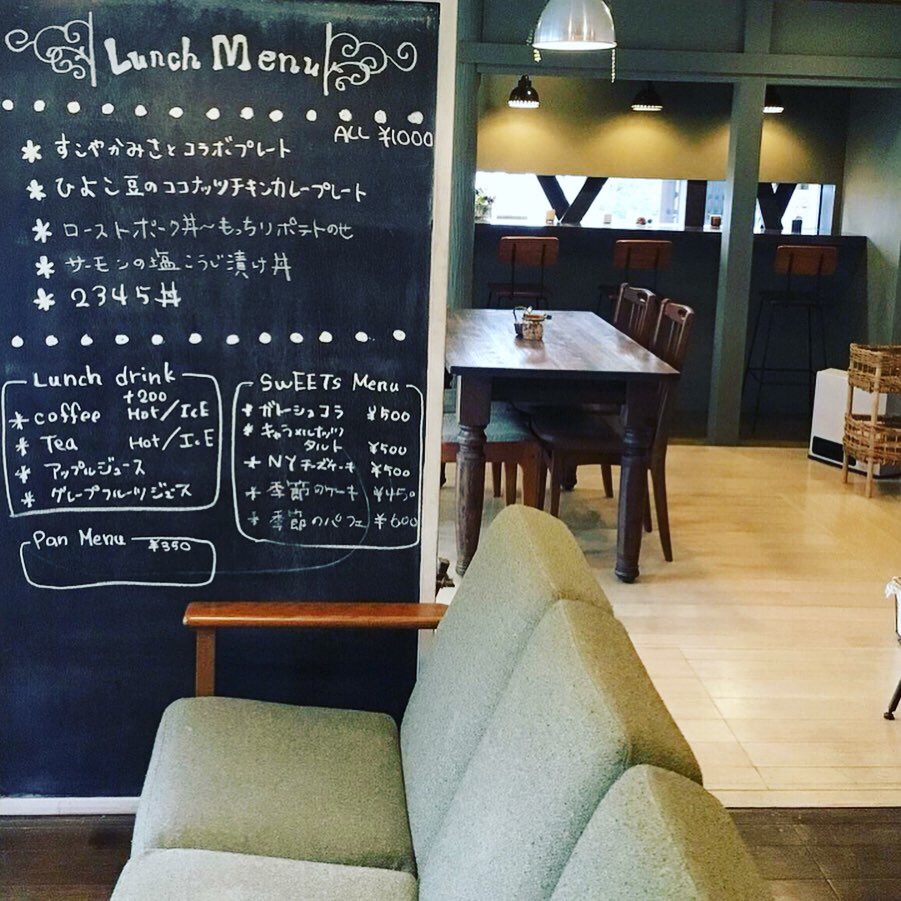 Lunch Menu
ALL ¥1000
* すこやかみさとコラボプレート
* ひよこ豆のココナッツチキンカレープレート
* ローストポーク丼〜もっちりポテトのせ
* サーモンの塩こうじ漬け丼
* 2345丼
Lunch drink
+200
* coffee Hot/IcE
* Tea Hot/IcE
* アップルジュース
* グレープフルーツジュース
SwEETs Menu
* ガトーショコラ ¥500
* キャラメルナッツ
タルト ¥500
* NYチーズケーキ ¥500
* 季節のケーキ ¥450
* 季節のパフェ ¥600
Pan Menu ¥350